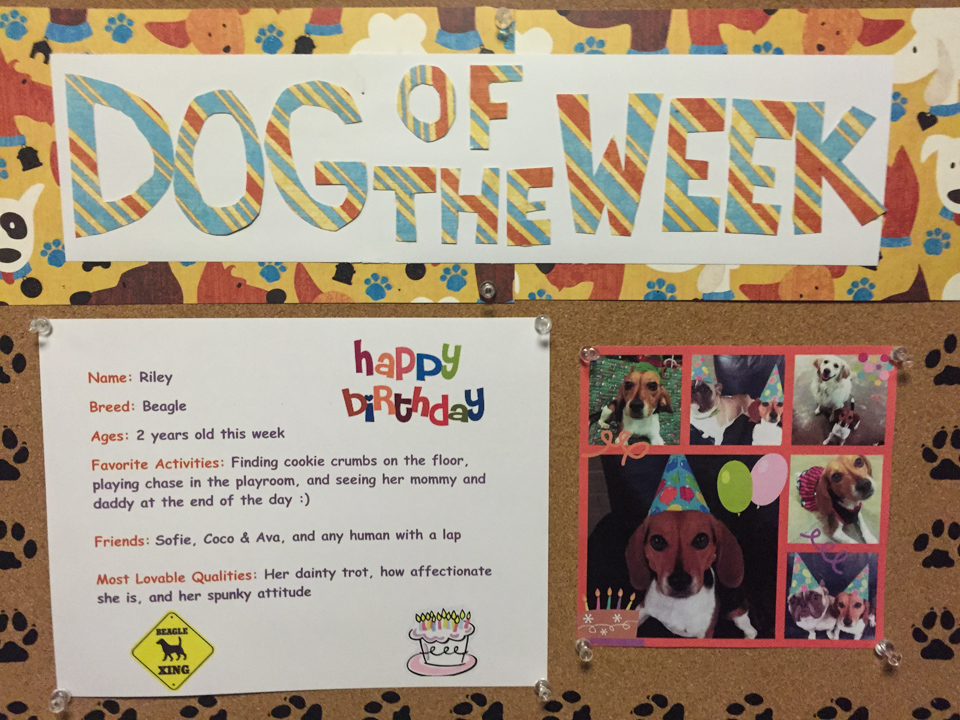 DOG OF THE WEEK
happy
birthday
Name: Riley
Breed: Beagle
Ages: 2 years old this week
Favorite Activities: Finding cookie crumbs on the floor,
playing chase in the playroom, and seeing her mommy and
daddy at the end of the day :)
Friends: Sofie, Coco & Ava, and any human with a lap
Most Lovable Qualities: Her dainty trot, how affectionate
she is, and her spunky attitude
BEAGLE
XING